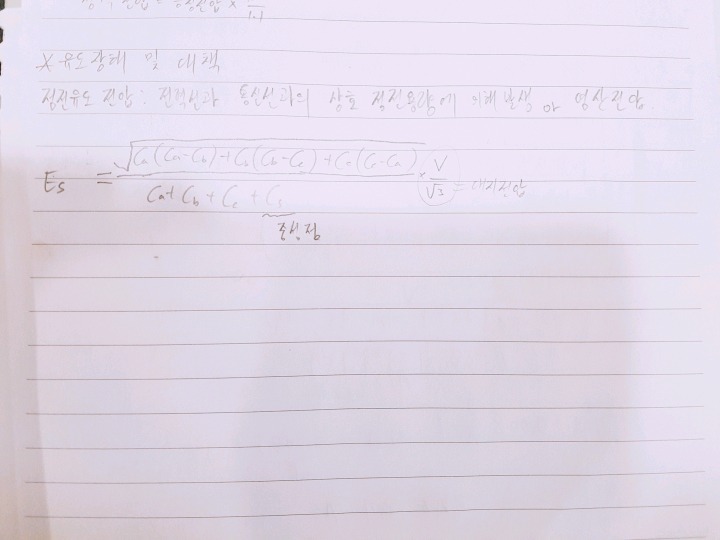 전압 = 공칭전압 × 1/1.1
* 유도장해 및 대책
정전유도 전압 : 전력선과 통신선과의 상호 정전용량에 의해 발생 or 영상전압.
Es = √(Ca(Ca-Cb)+Cb(Cb-Cc)+Cc(Cc-Ca)) / (Ca+Cb+Cc+Cs) × V/√3 = 대지전압
중성점